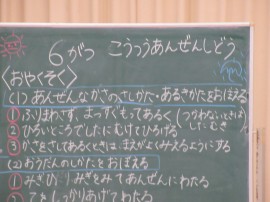 6がつ こうつうあんぜんしどう
〈おやくそく〉
(1)あんぜんなかさのさしかた・あるきかたをおぼえる
①ふりまわさず、まっすぐもってあるく(つかわないときは
した・むき)
②ひろいところでしたにむけてひろげる
③かさをさしてあるくときは、まえがよくみえるようにする
(2)おうだんのしかたをおぼえる
①みぎひだりみぎをみてあんぜんにわたる
てをしっかりあげてわたる